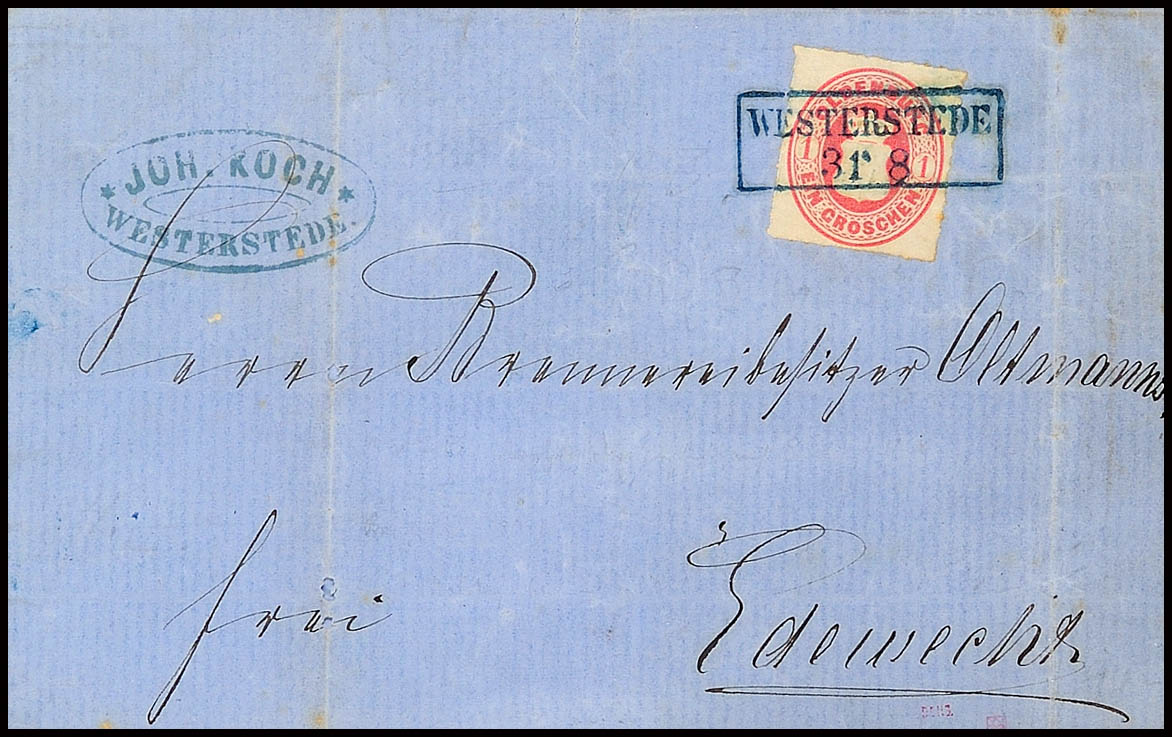 JOH. KOCH
WESTERSTEDE.
OLDENBURG
WESTERSTEDE
31 8
1 1
EIN GROSCHEN
Herrn Brennereibesitzer Oltmanns,
frei
Edewecht